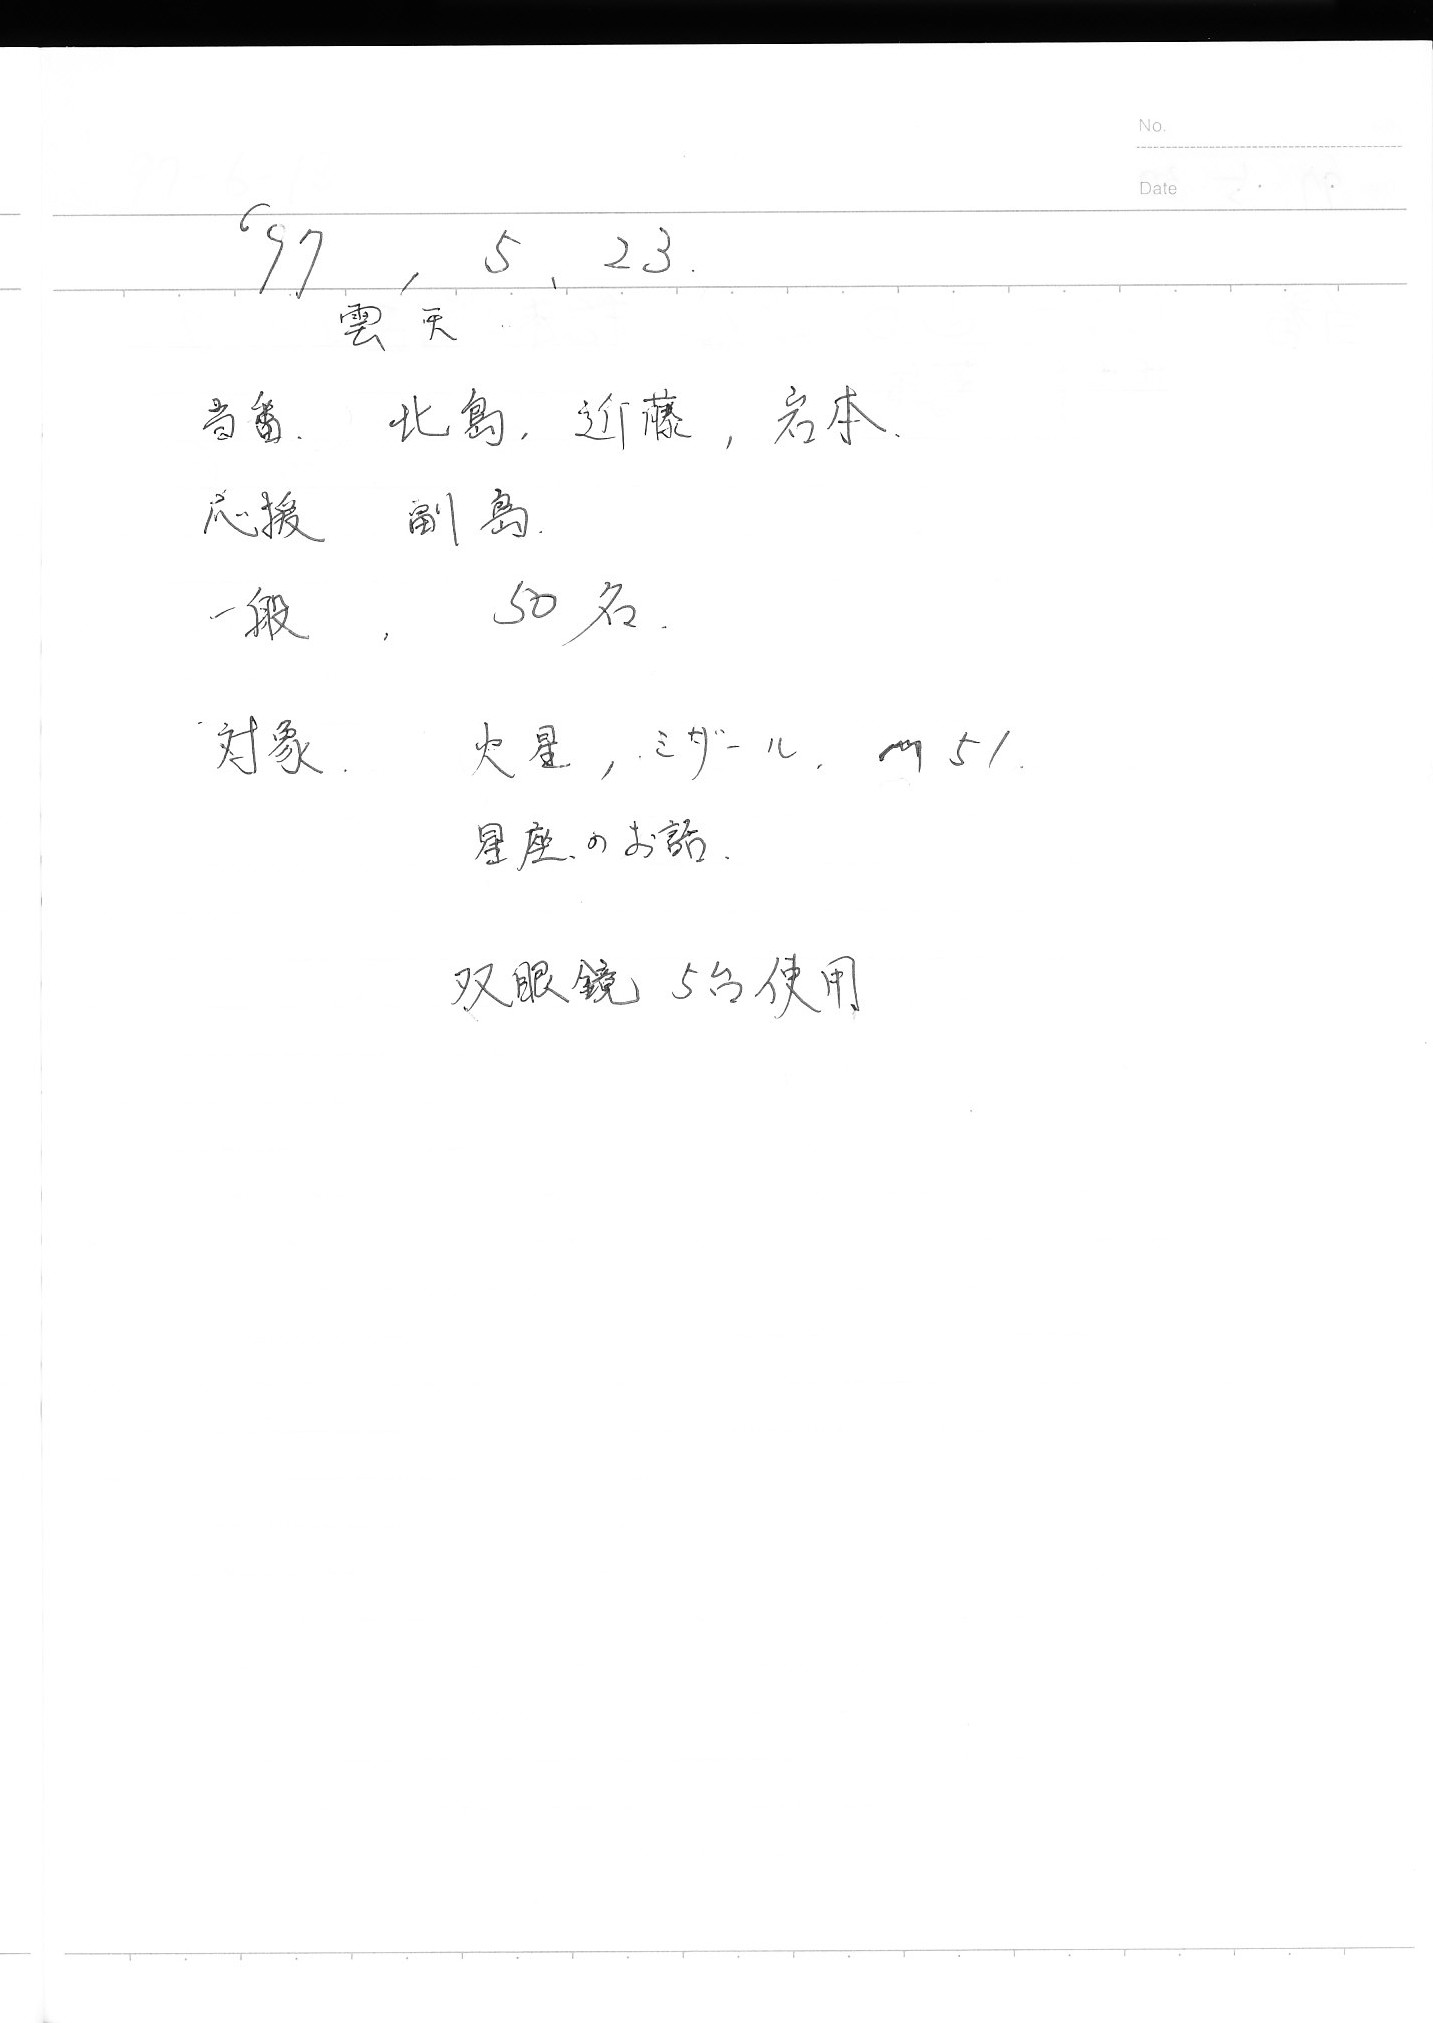 No.
Date
'97, 5, 23.
雲天
当番. 北島, 近藤, 岩本.
応援 副島.
一般, 50名.
対象. 火星, ミザール, m51.
星座のお話.
双眼鏡 5台使用